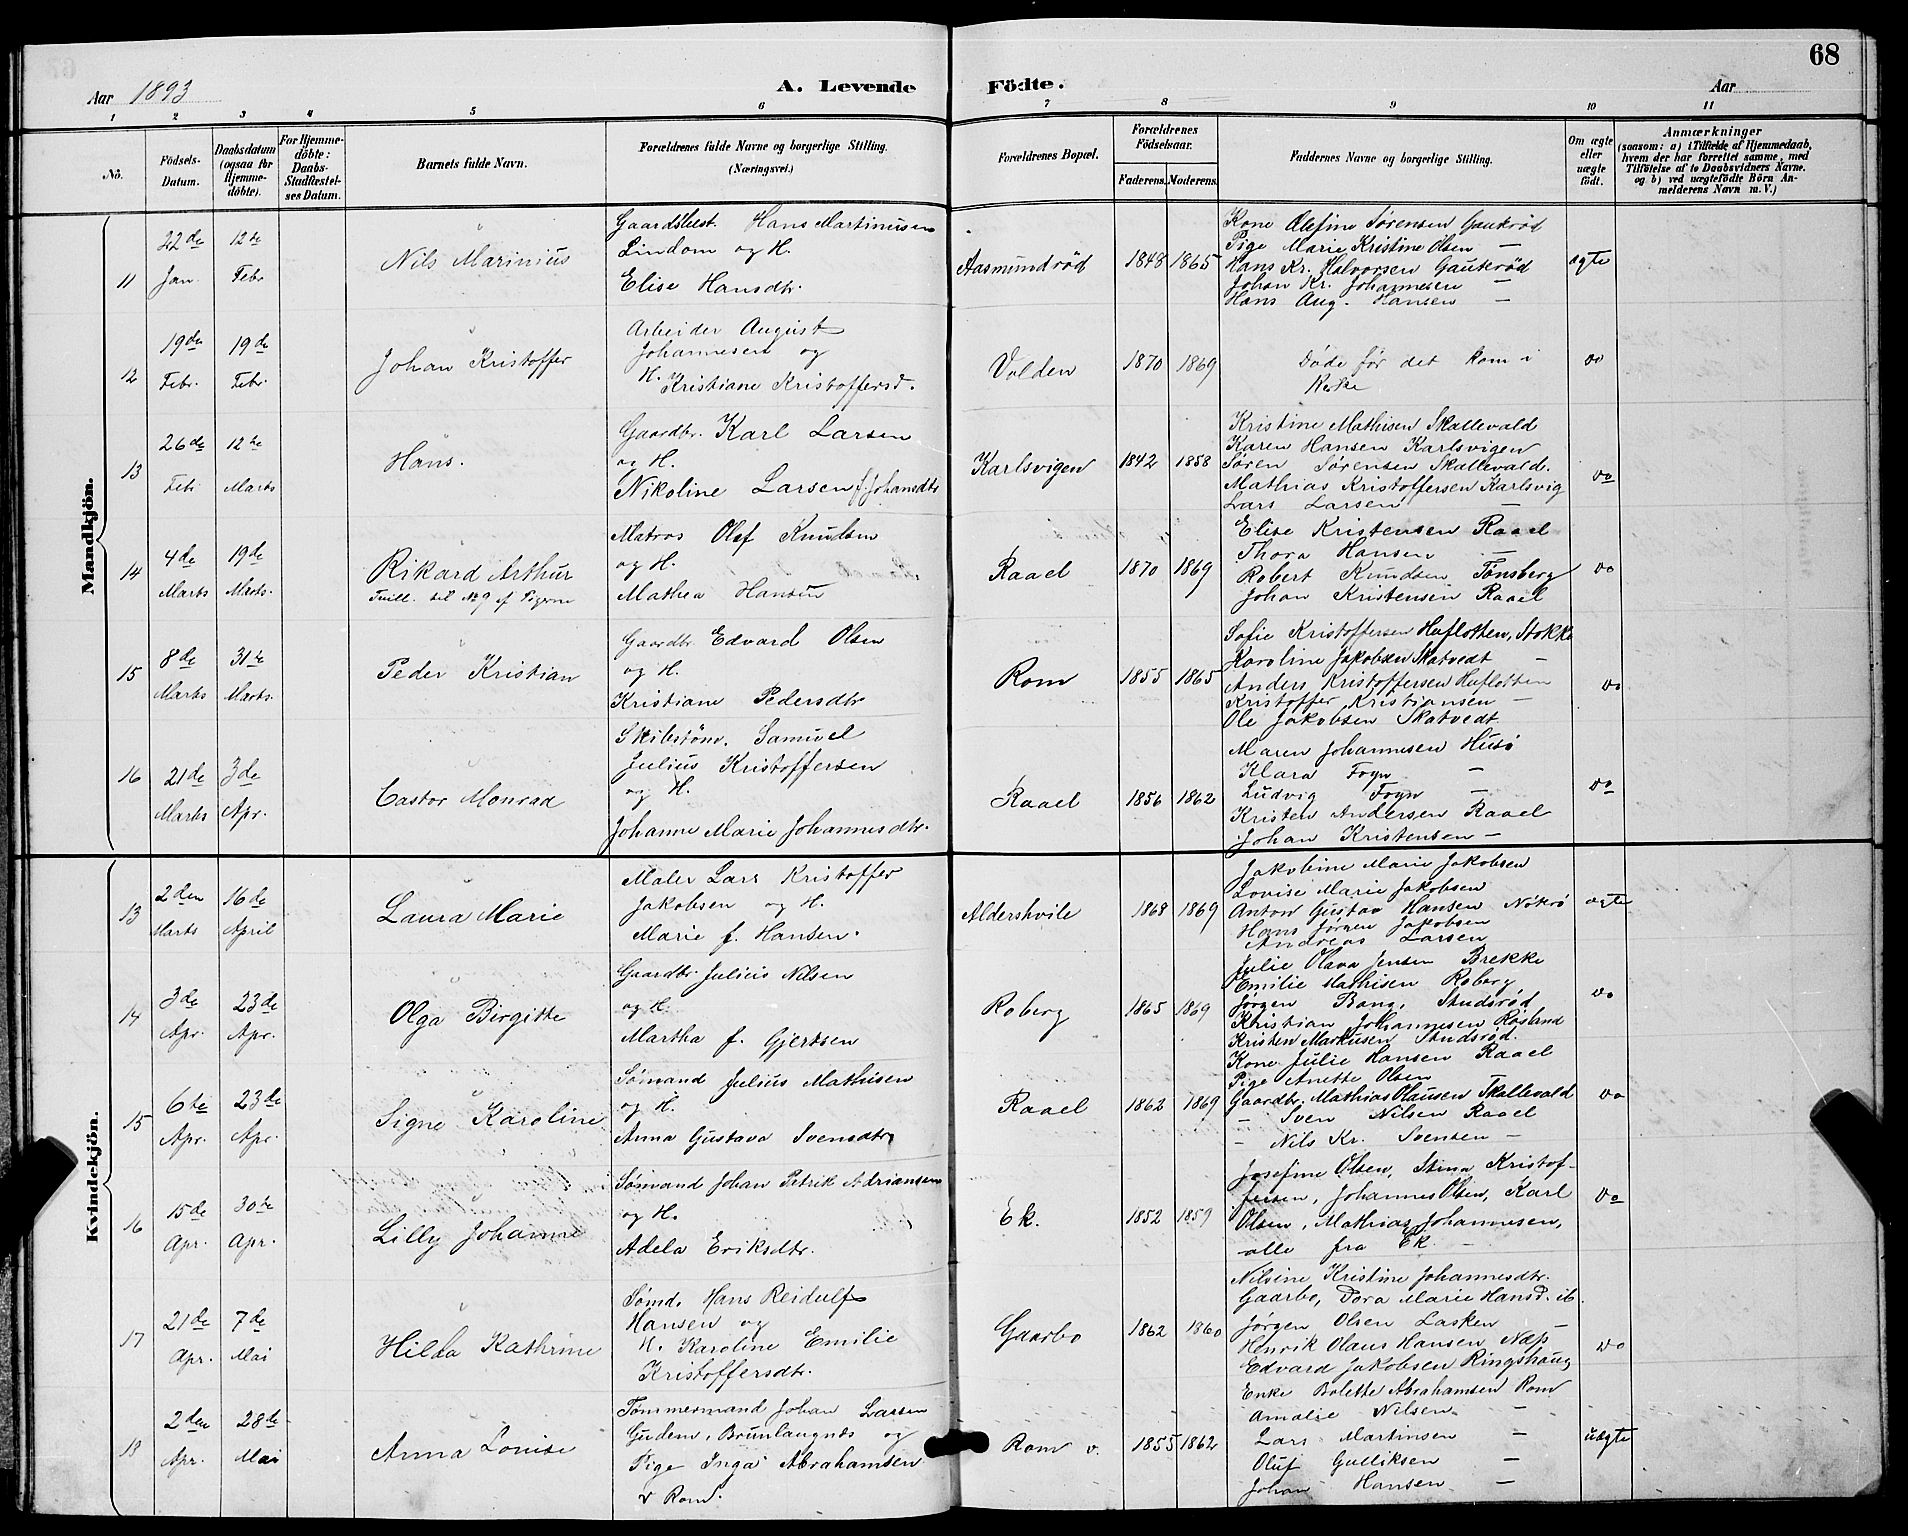 68
Aar 1893 A. Levende Födte. Aar
1 2 3 4 5 6 7 8 9 10 11
No. Födsels-Datum. Daabsdatum (ogsaa for Hjemmedöbte). For Hjemmedöbte: Daabs-Stadfæstelses Datum. Barnets fulde Navn. Forældrenes fulde Navne og borgerlige Stilling. (Næringsvei.) Forældrenes Bopæl. Forældrenes Födselsaar. Faderens. Moderens. Faddernes Navne og borgerlige Stilling. Om ægte eller uægte födt. Anmærkninger (saasom: a) i Tilfælde af Hjemmedaab, hvem der har forrettet samme, med Tilföielse af to Daabsvidners Navne. og b) ved uægtefödte Börn Anmelderens Navn m. V.)
Mandkjön.
11 22de Jan. 12te Febr Nils Marinius
Gaardsbest. Hans Martinusen
Lindom og H.
Elise Hansdtr.
Aasmundrød 1848 1865
Kone Olefine Sørensen Gaukrød
Pige Marie Kristine Olsen —
Hans Kr. Halvorsen Gaukrød
Johan Kr. Johannesen —
Hans Aug. Hansen —
ægte
12 19de Febr. 19de Febr. Johan Kristoffer
Arbeider August
Johannesen og
H. Kristiane Kristoffersd.
Volden 1870 1869
Døde før det kom i
Kirke
do
13 26de Feb 12te Marts Hans.
Gaardbr. Karl Larsen
og H.
Nikoline Larsen f. Johansdtr
Karlsvigen 1842 1858
Kristine Mathisen Skallevald
Karen Hansen Karlsvigen
Søren Sørensen Skallevald.
Mathias Kristoffersen Karlsvig
Lars Larsen —
do
14 4de Marts 19de Marts. Rikard Arthur
Tvill. til No 9 af Pigerne
Matros Olaf Knudsen
og H.
Mathea Hansen
Raael 1870 1869
Elise Kristensen Raael
Thora Hansen —
Robert Knudsen Tønsberg
Johan Kristensen Raael
do
15 8de Marts 31te Marts. Peder Kristian
Gaardbr Edvard Olsen
og H.
Kristiane Pedersdtr
Rom 1855 1865
Sofie Kristoffersen Huflotten, Stokke
Karoline Jakobsen Skatvedt —
Anders Kristoffersen Huflotten
Kristoffer Kristiansen —
Ole Jakobsen Skatvedt
do
16 21de Marts 3de Apr. Castor Monrad
Skibstøm. Samuel
Julius Kristoffersen
og H.
Johanne Marie Johannesdtr.
Raael 1856 1862
Maren Johannesen Husö
Klara Foyn —
Ludvig Foyn —
Kristen Andersen Raael
Johan Kristensen —
do
Kvindekjön.
13 2den Marts 16de April Laura Marie
Maler Lars Kristoffer
Jakobsen og H.
Marie f. Hansen.
Aldershvile 1868 1869
Jakobine Marie Jakobsen
Lovise Marie Jakobsen
Anton Gustav Hansen Nökrö
Hans Jørgen Jakobsen
Andreas Larsen
ægte
14 3de Apr. 23de Apr. Olga Birgitte
Gaardbr. Julius Nilsen
og H.
Martha f. Gjertsen
Roberg 1865 1869
Julie Olava Jensen Brekke
Emilie Mathisen Roberg
Jørgen Bang, Studsrød
Kristian Johannesen Røsland
Kristen Markusen Studsrød.
do
15 6te Apr. 23de Apr. Signe Karoline
Sømand Julius Mathisen
og H.
Anna Gustava Svensdtr
Raael 1862 1869
Kone Julie Hansen Raael
Pige Anette Olsen
Gaardbr. Mathias Olausen Skallevald
— Sven Nilsen Raael
— Nils Kr. Svensen —
do
16 15de Apr. 30te Apr. Lilly Johanne
Sømand Johan Petrik Adriansen
og H.
Adela Eriksdtr.
Ek. 1852 1859
Josefine Olsen, Stina Kristof-
fersen, Johannes Olsen, Karl
Olsen, Mathias Johannesen,
alle fra Ek. —
do
17 21de Apr. 7de Mai Hilda Kathrine
Sømd. Hans Reidulf
Hansen og
H. Karoline Emilie
Kristoffersdtr.
Gaarbo 1862 1860
Nilsine Kristine Johannesdtr.
Gaarbo, Dora Marie Hansd. ib.
Jørgen Olsen Lasken —
Henrik Olaus Hansen Næs
Edvard Jakobsen Ringshaug
do
18 2den Apr. 28de Mai Anna Louise
Tømmermand Johan Larsen
Gudem, Brunlangnæs og
Pige Inga Abrahamsen
v Rom.
Rom v. 1855 1862
Enke Bolette Abrahamsen Rom
Amalie Nilsen —
Lars Martinsen —
Oluf Gulliksen —
Johan Hansen —
uægte